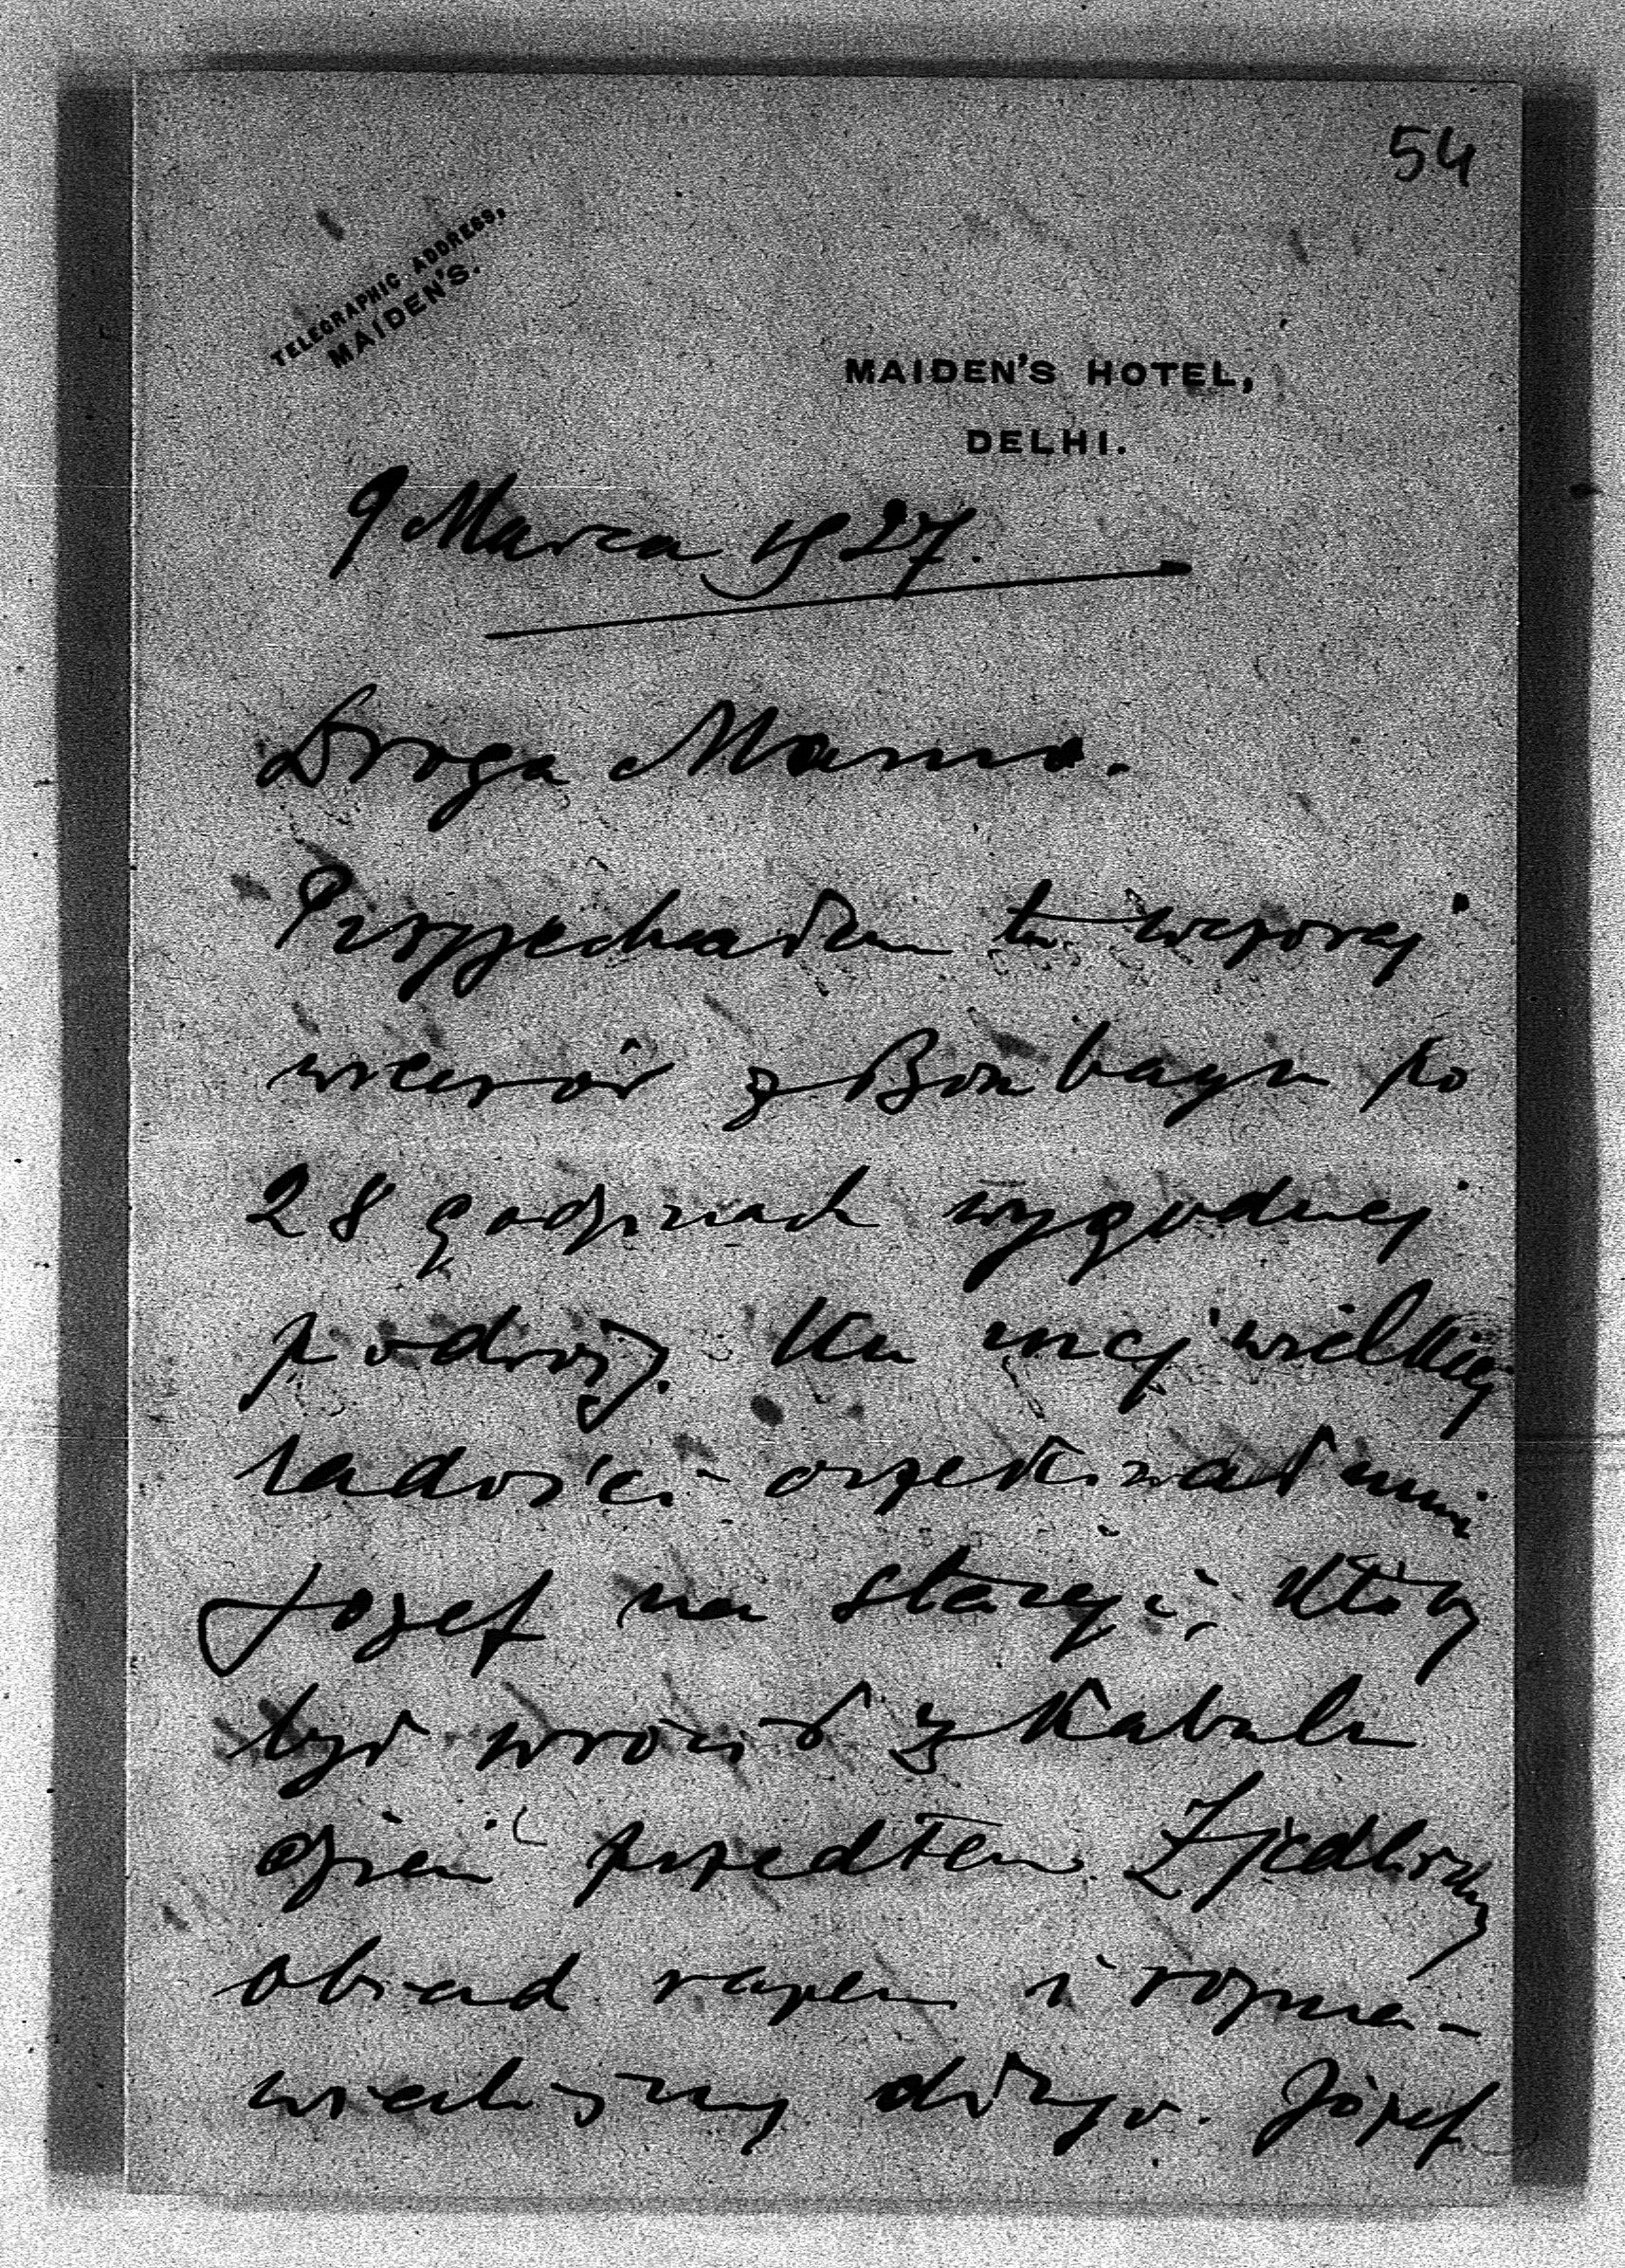 54
TELEGRAPHIC ADDRESS,
MAIDEN'S.
MAIDEN'S HOTEL,
DELHI.
9 Marca 1927.
Droga Mamo.
Przyjechałem tu wczoraj
wieczór z Bombayu po
28 godzinach wygodnej
podroży. Ku mej wielkiej
radości oczekiwał mnie
Jozef na stacyi, który
był wrócił z Kabulu
dzień przedtem. Zjedliśmy
obiad razem i rozma-
wialiśmy długo. Józef